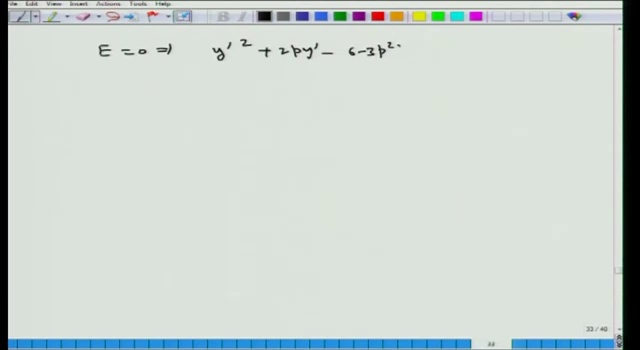 File Edit View Insert Actions Tools Help
E = 0 ⇒ y'² + 2py' - 6-3p²
33 / 40
33